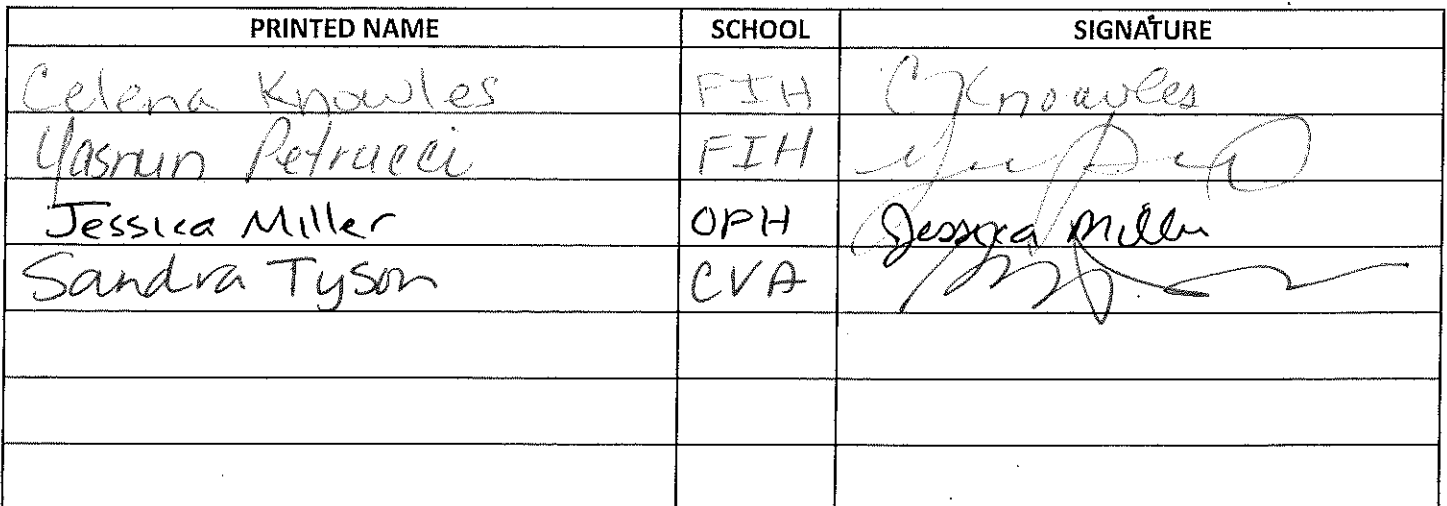 PRINTED NAME SCHOOL SIGNATURE
Celena Knowles FIH CKnowles
Petrucci FIH
Jessica Miller OPH Jessica Miller
Sandra Tyson CVA